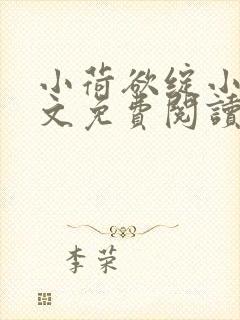 小荷欲绽小
文免費閱讀
李荣